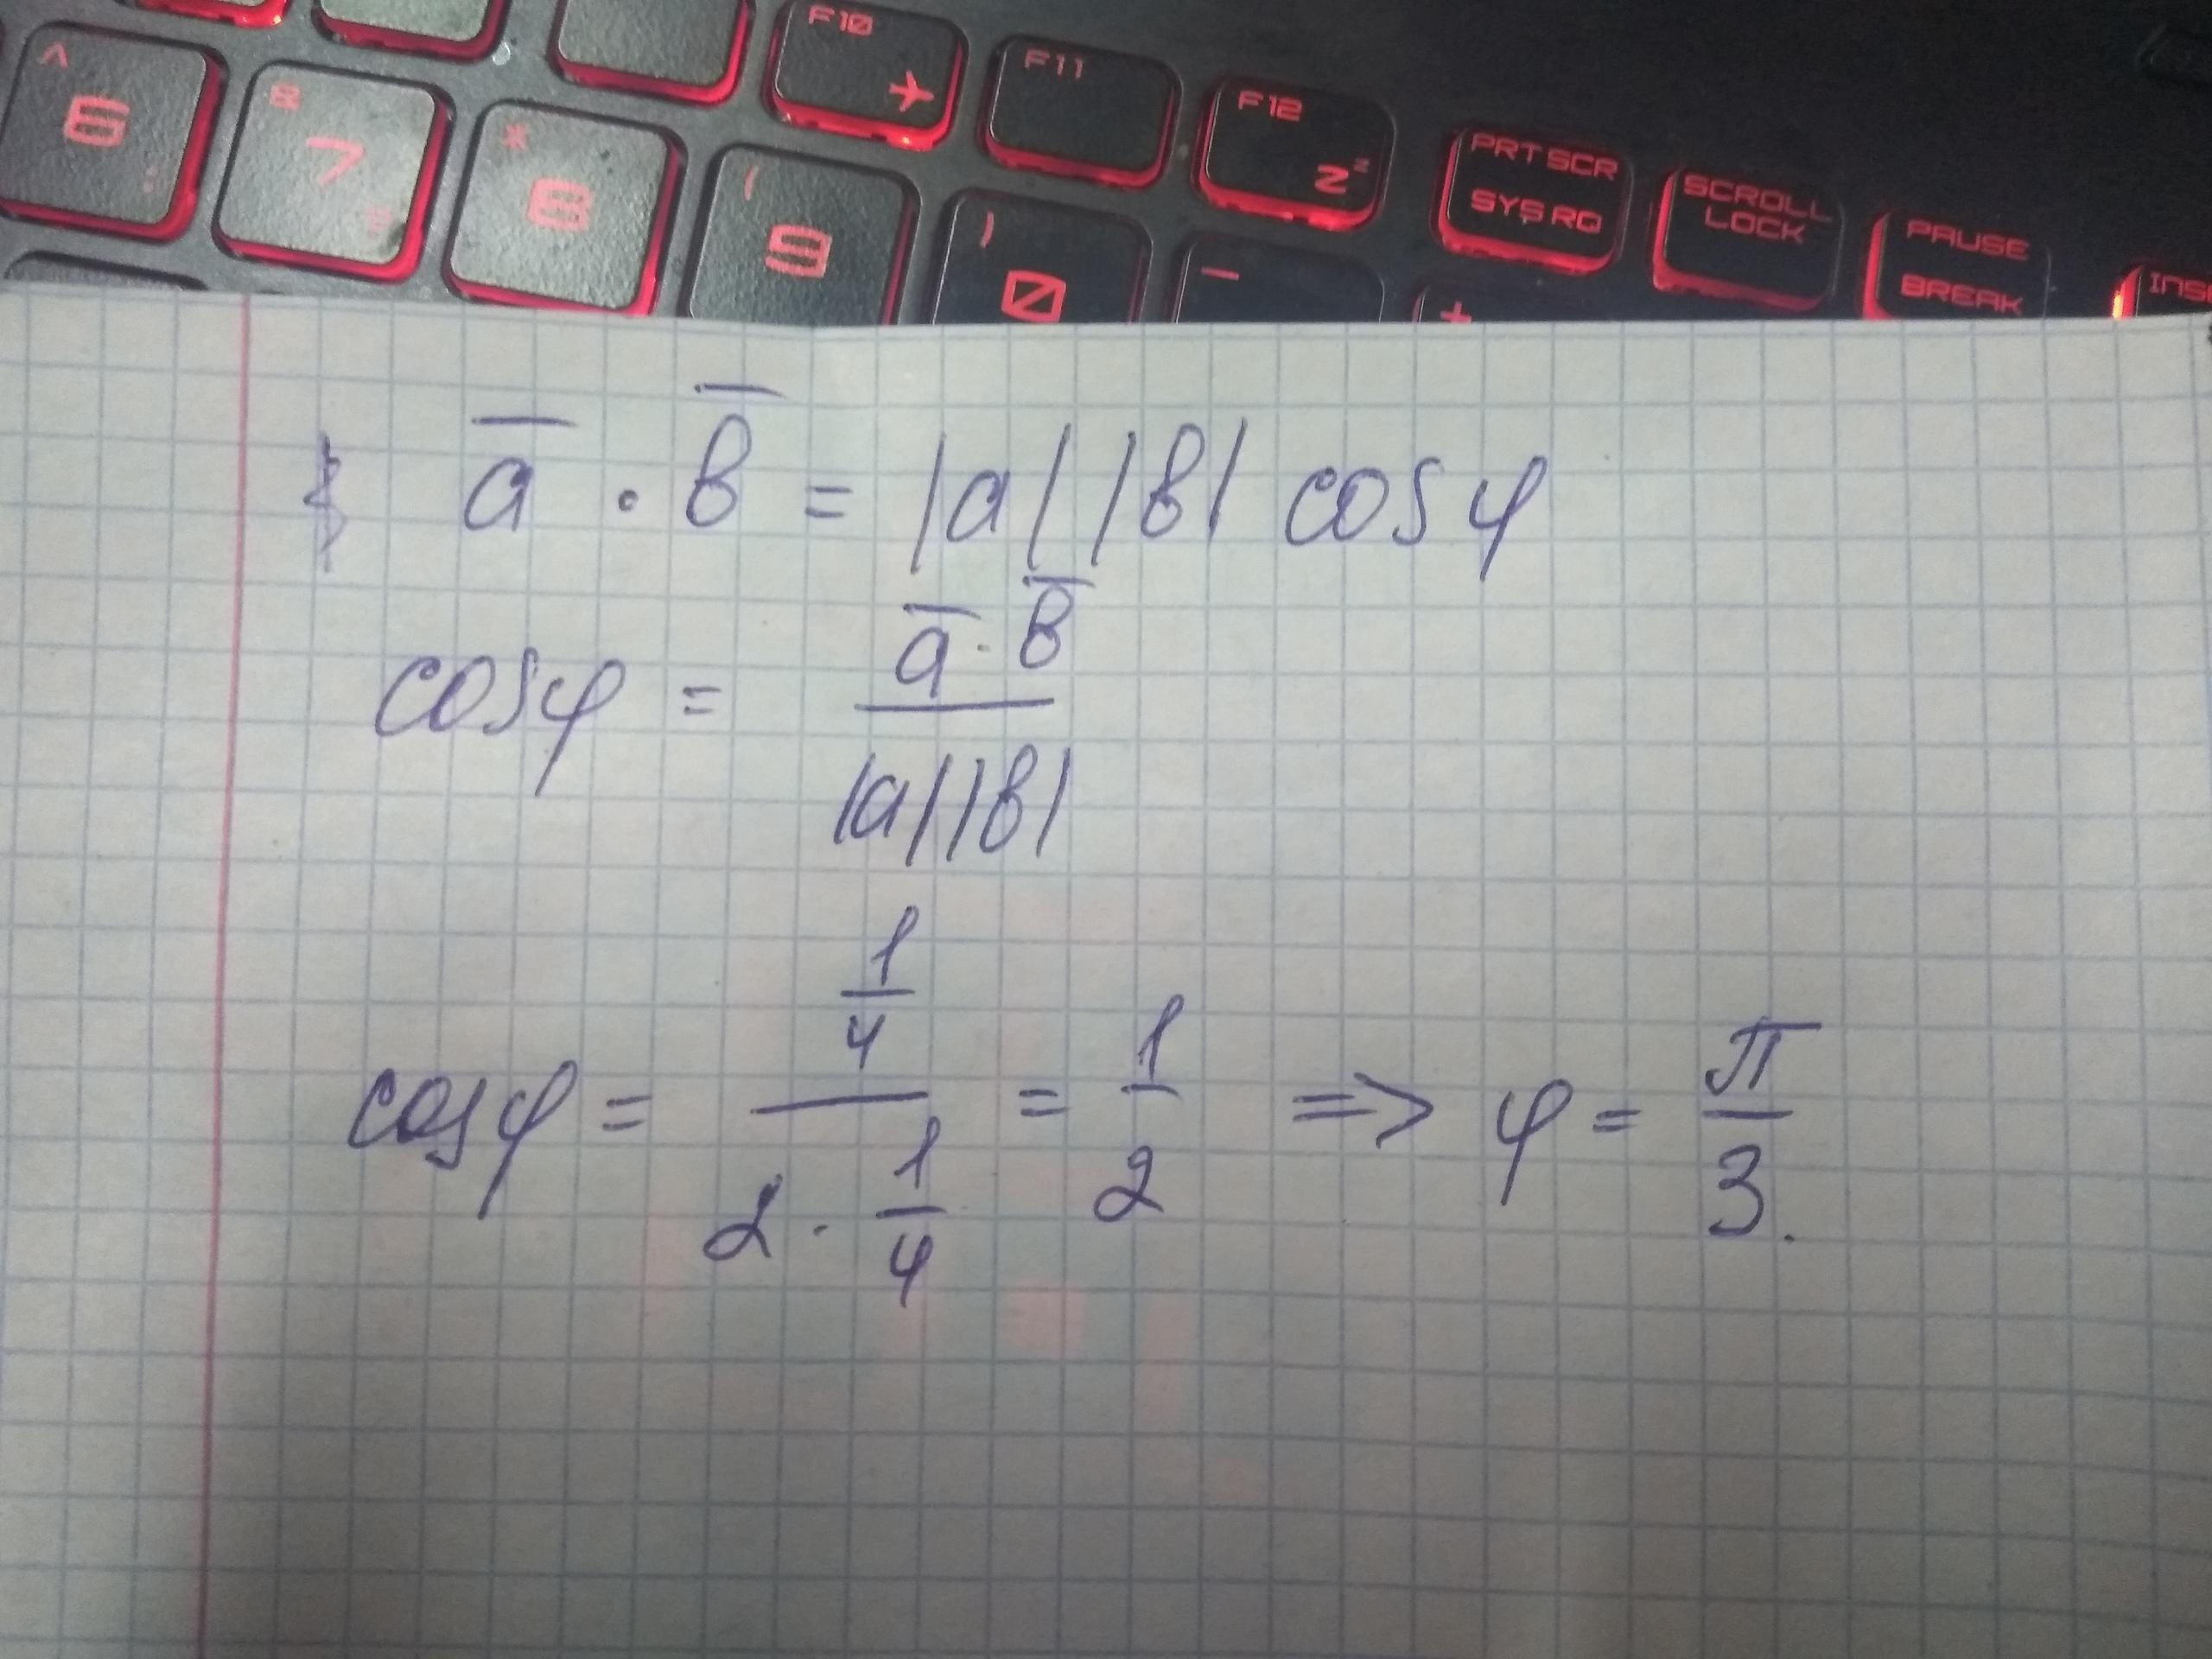 F10 F11 F12 Zz PRT SCR SYS RQ SCROLL LOCK PAUSE BREAK
^ 6 & 7 * 8 ( 9 ) 0 - +
a̅ · b̅ = |a| |b| cos φ
cos φ = (a̅ · b̅) / (|a| |b|)
cos φ = (1/4) / (2 · 1/4) = 1/2 => φ = π/3.